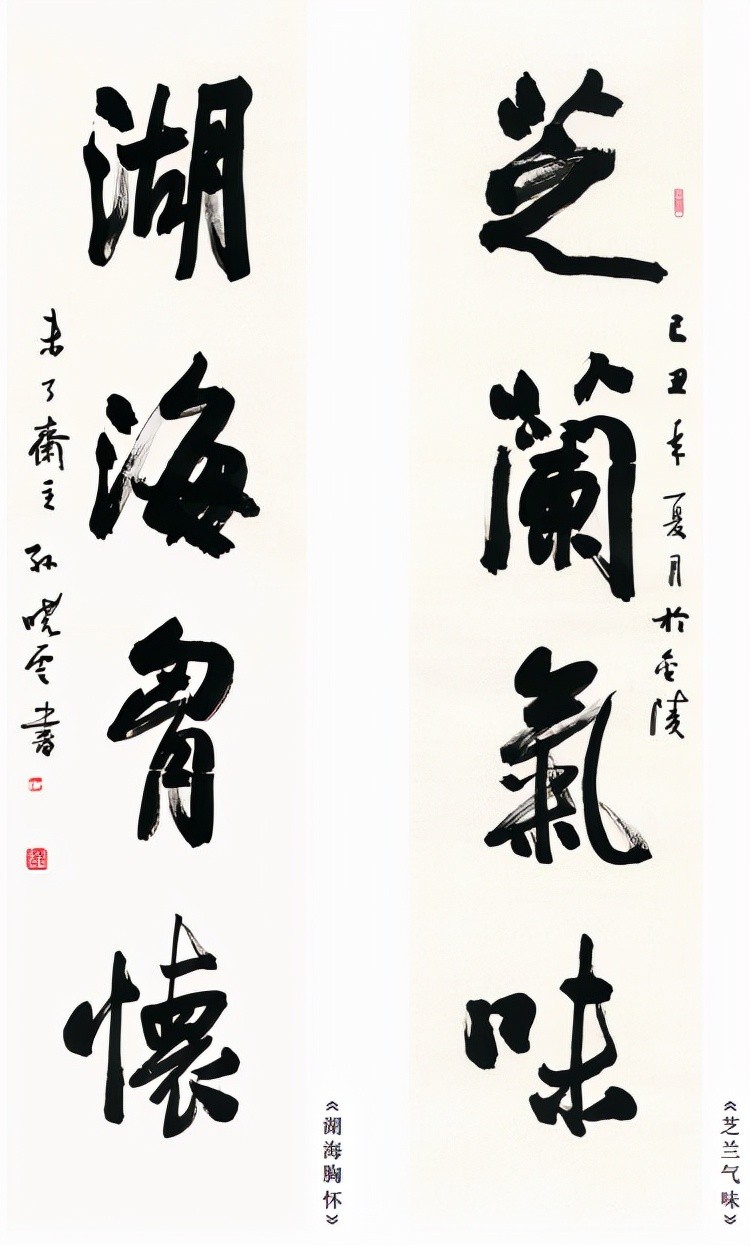 芝蘭氣味
己丑年夏月於金陵
《芝兰气味》
湖海胷懷
未了齋主孫曉雲書
《湖海胸怀》